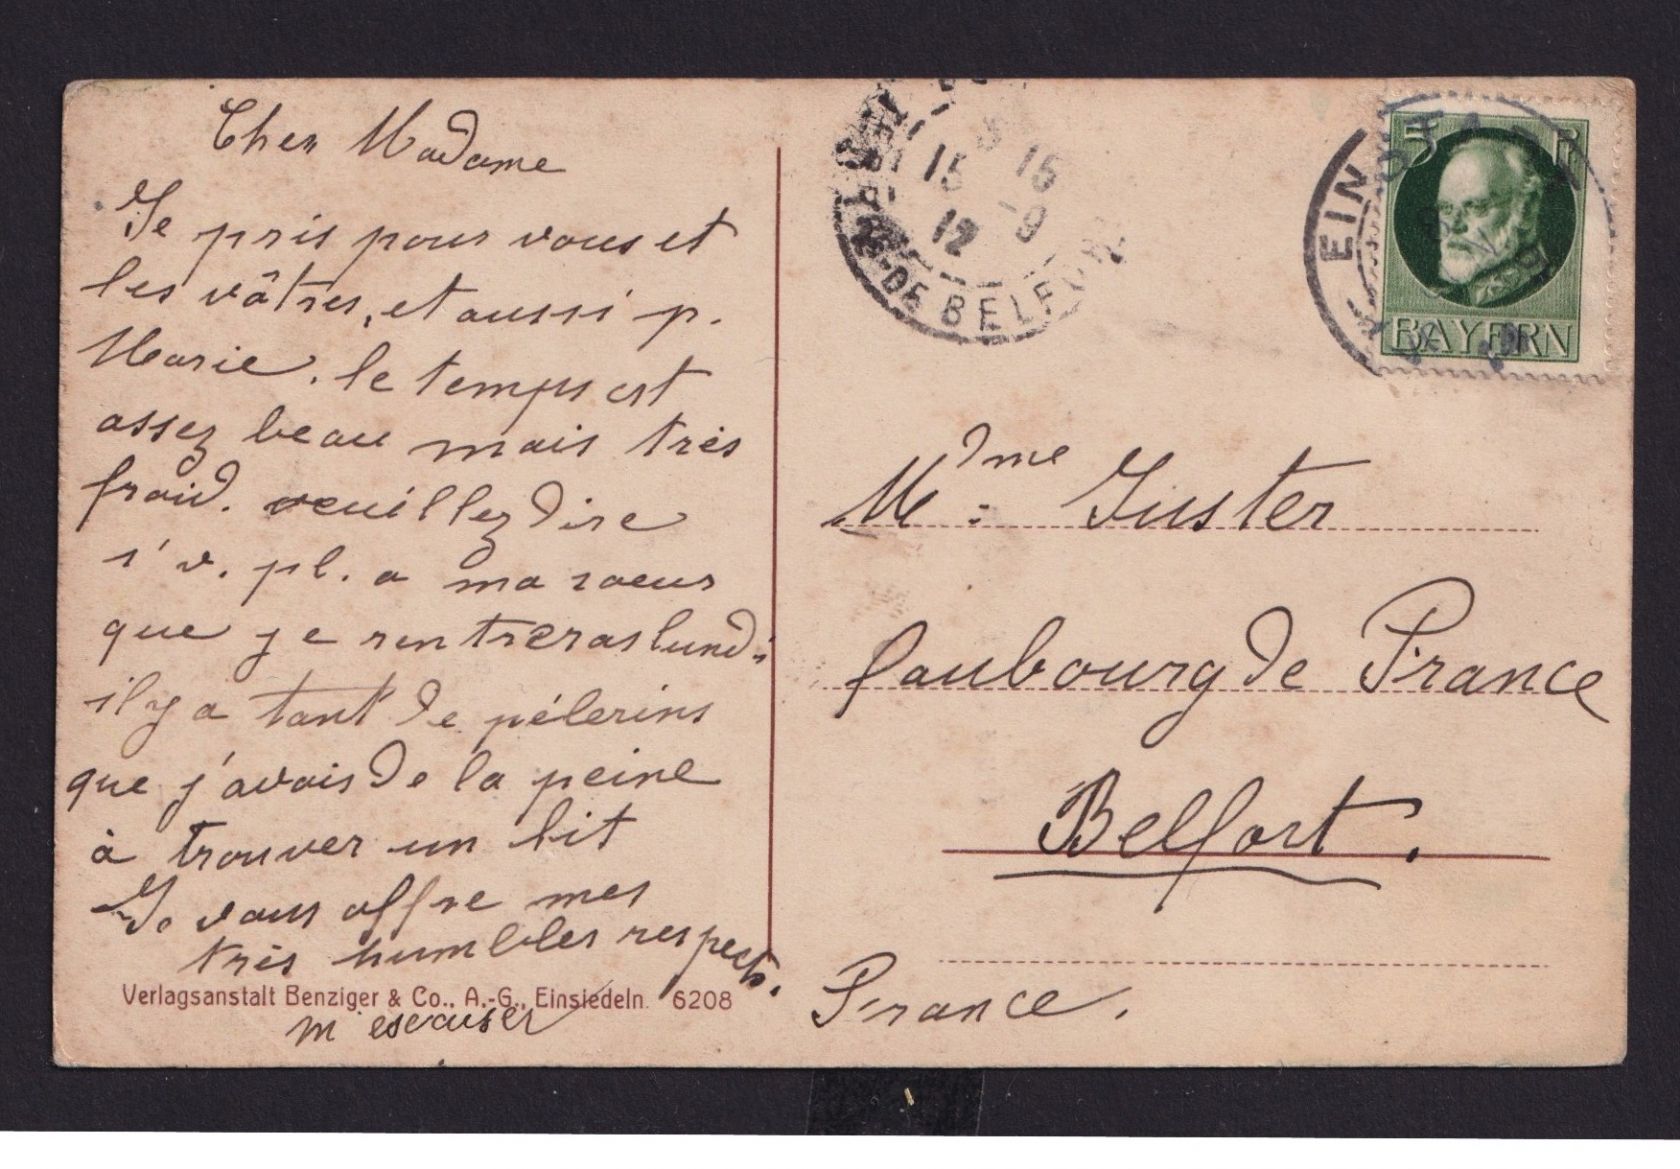 Cher Madame
Je pris pour vous et
les vâtres, et aussi p.
Marie. le temps est
assez beau mais très
froid. veuillez dire
s'v. pl. a ma soeur
que je rentreras lundi
il y a tant de pélerins
que j'avais de la peine
à trouver un lit
Je vous offre mes
très humbles respects.
Verlagsanstalt Benziger & Co., A.-G., Einsiedeln. 6208
m'escuser
15 15
12 -9
DE BELFORT
EIN
5
BAYERN
Mme: Juster
faubourg de France
Belfort.
France.